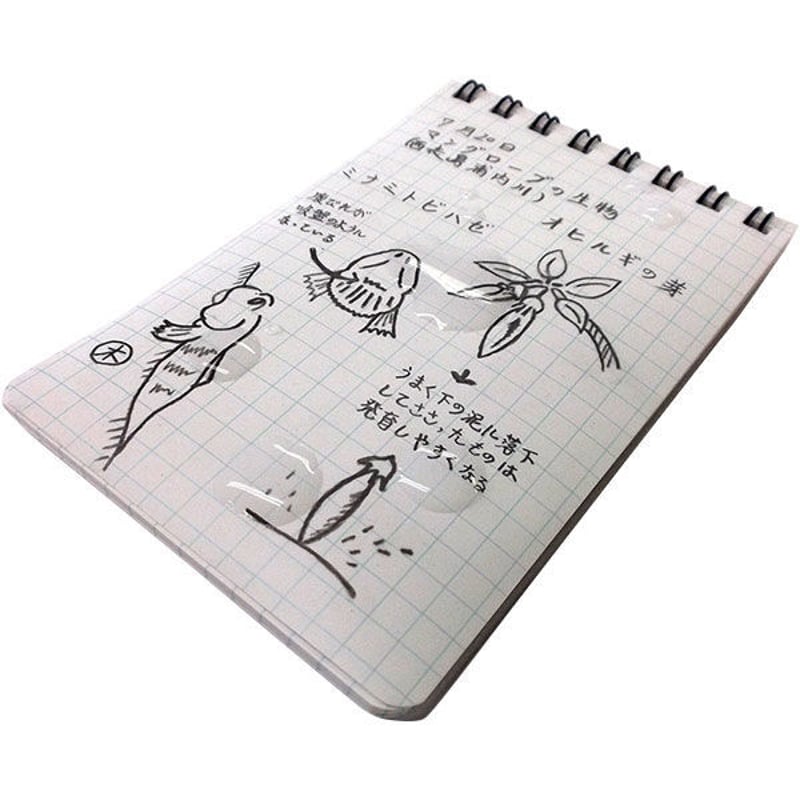 7月20日
マングローブの生物
(西表島浦内川)
ミナミトビハゼ
腹びれが
吸盤のように
なっている
木
オヒルギの芽
うまく下の泥に落下
してささったものは
発育しやすくなる